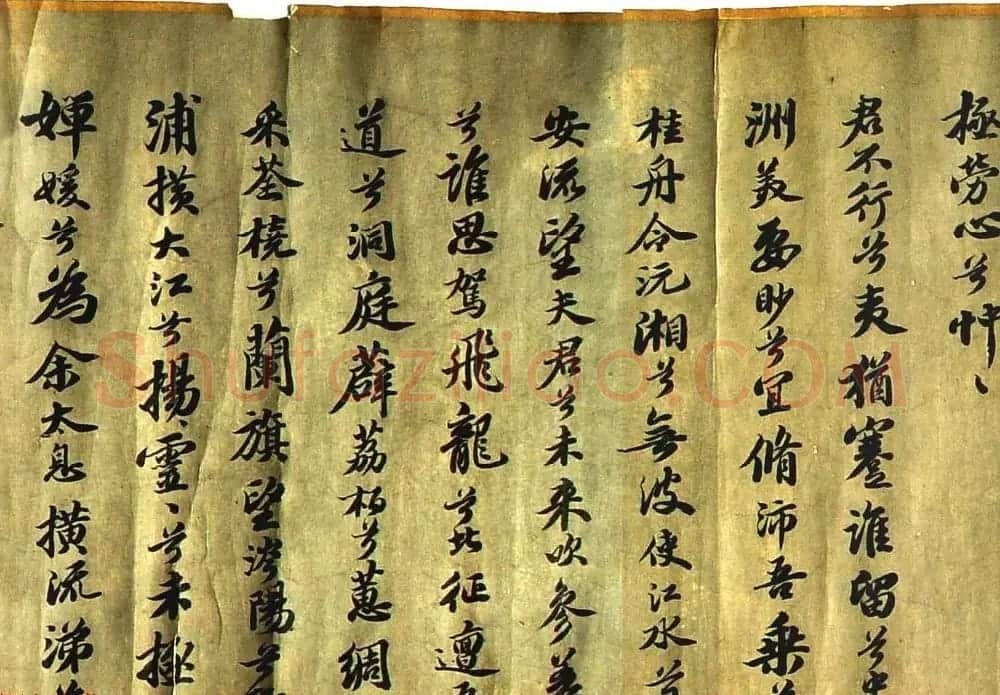 極勞心兮忡〻
君不行兮夷猶蹇誰留兮
洲美要眇兮宜脩沛吾乗兮
桂舟令沅湘兮無波使江水兮
安流望夫君兮未来吹參差
兮誰思駕飛龍兮北征邅
道兮洞庭薜荔柏兮蕙綢
采荃橈兮蘭旗望涔陽兮
浦横大江兮揚靈〻兮未極
嬋媛兮為余太息橫流涕兮
Shufaziliao.COM